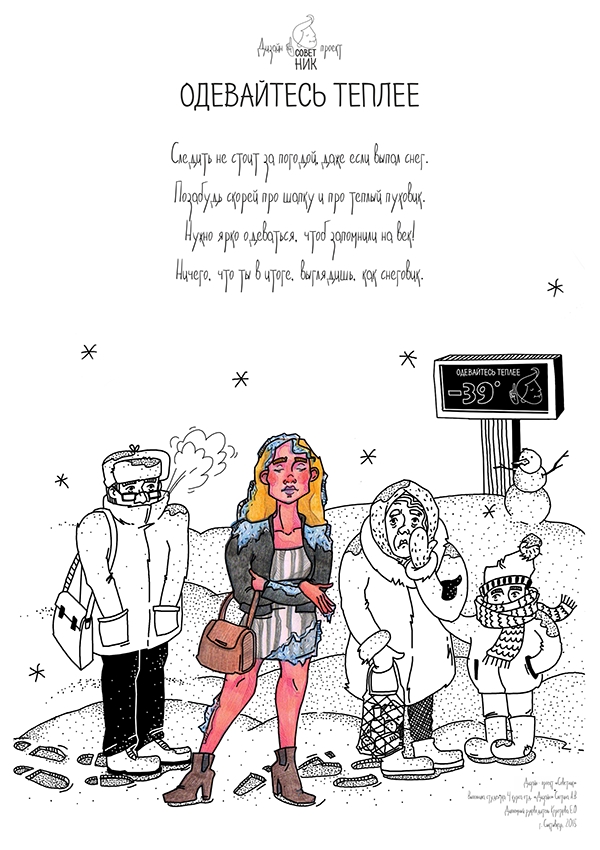 Дизайн проект
СОВЕТ
НИК
ОДЕВАЙТЕСЬ ТЕПЛЕЕ
Следить не стоит за погодой, даже если выпал снег.
Позабудь скорей про шапку и про теплый пуховик.
Нужно ярко одеваться, чтоб запомнили на век!
Ничего, что ты в итоге, выглядишь, как снеговик.
ОДЕВАЙТЕСЬ ТЕПЛЕЕ
-39°
Дизайн проект «Советник»
Выполнила студентка 4 курса «Дизайн»
Дипломный руководитель Е.О
2016